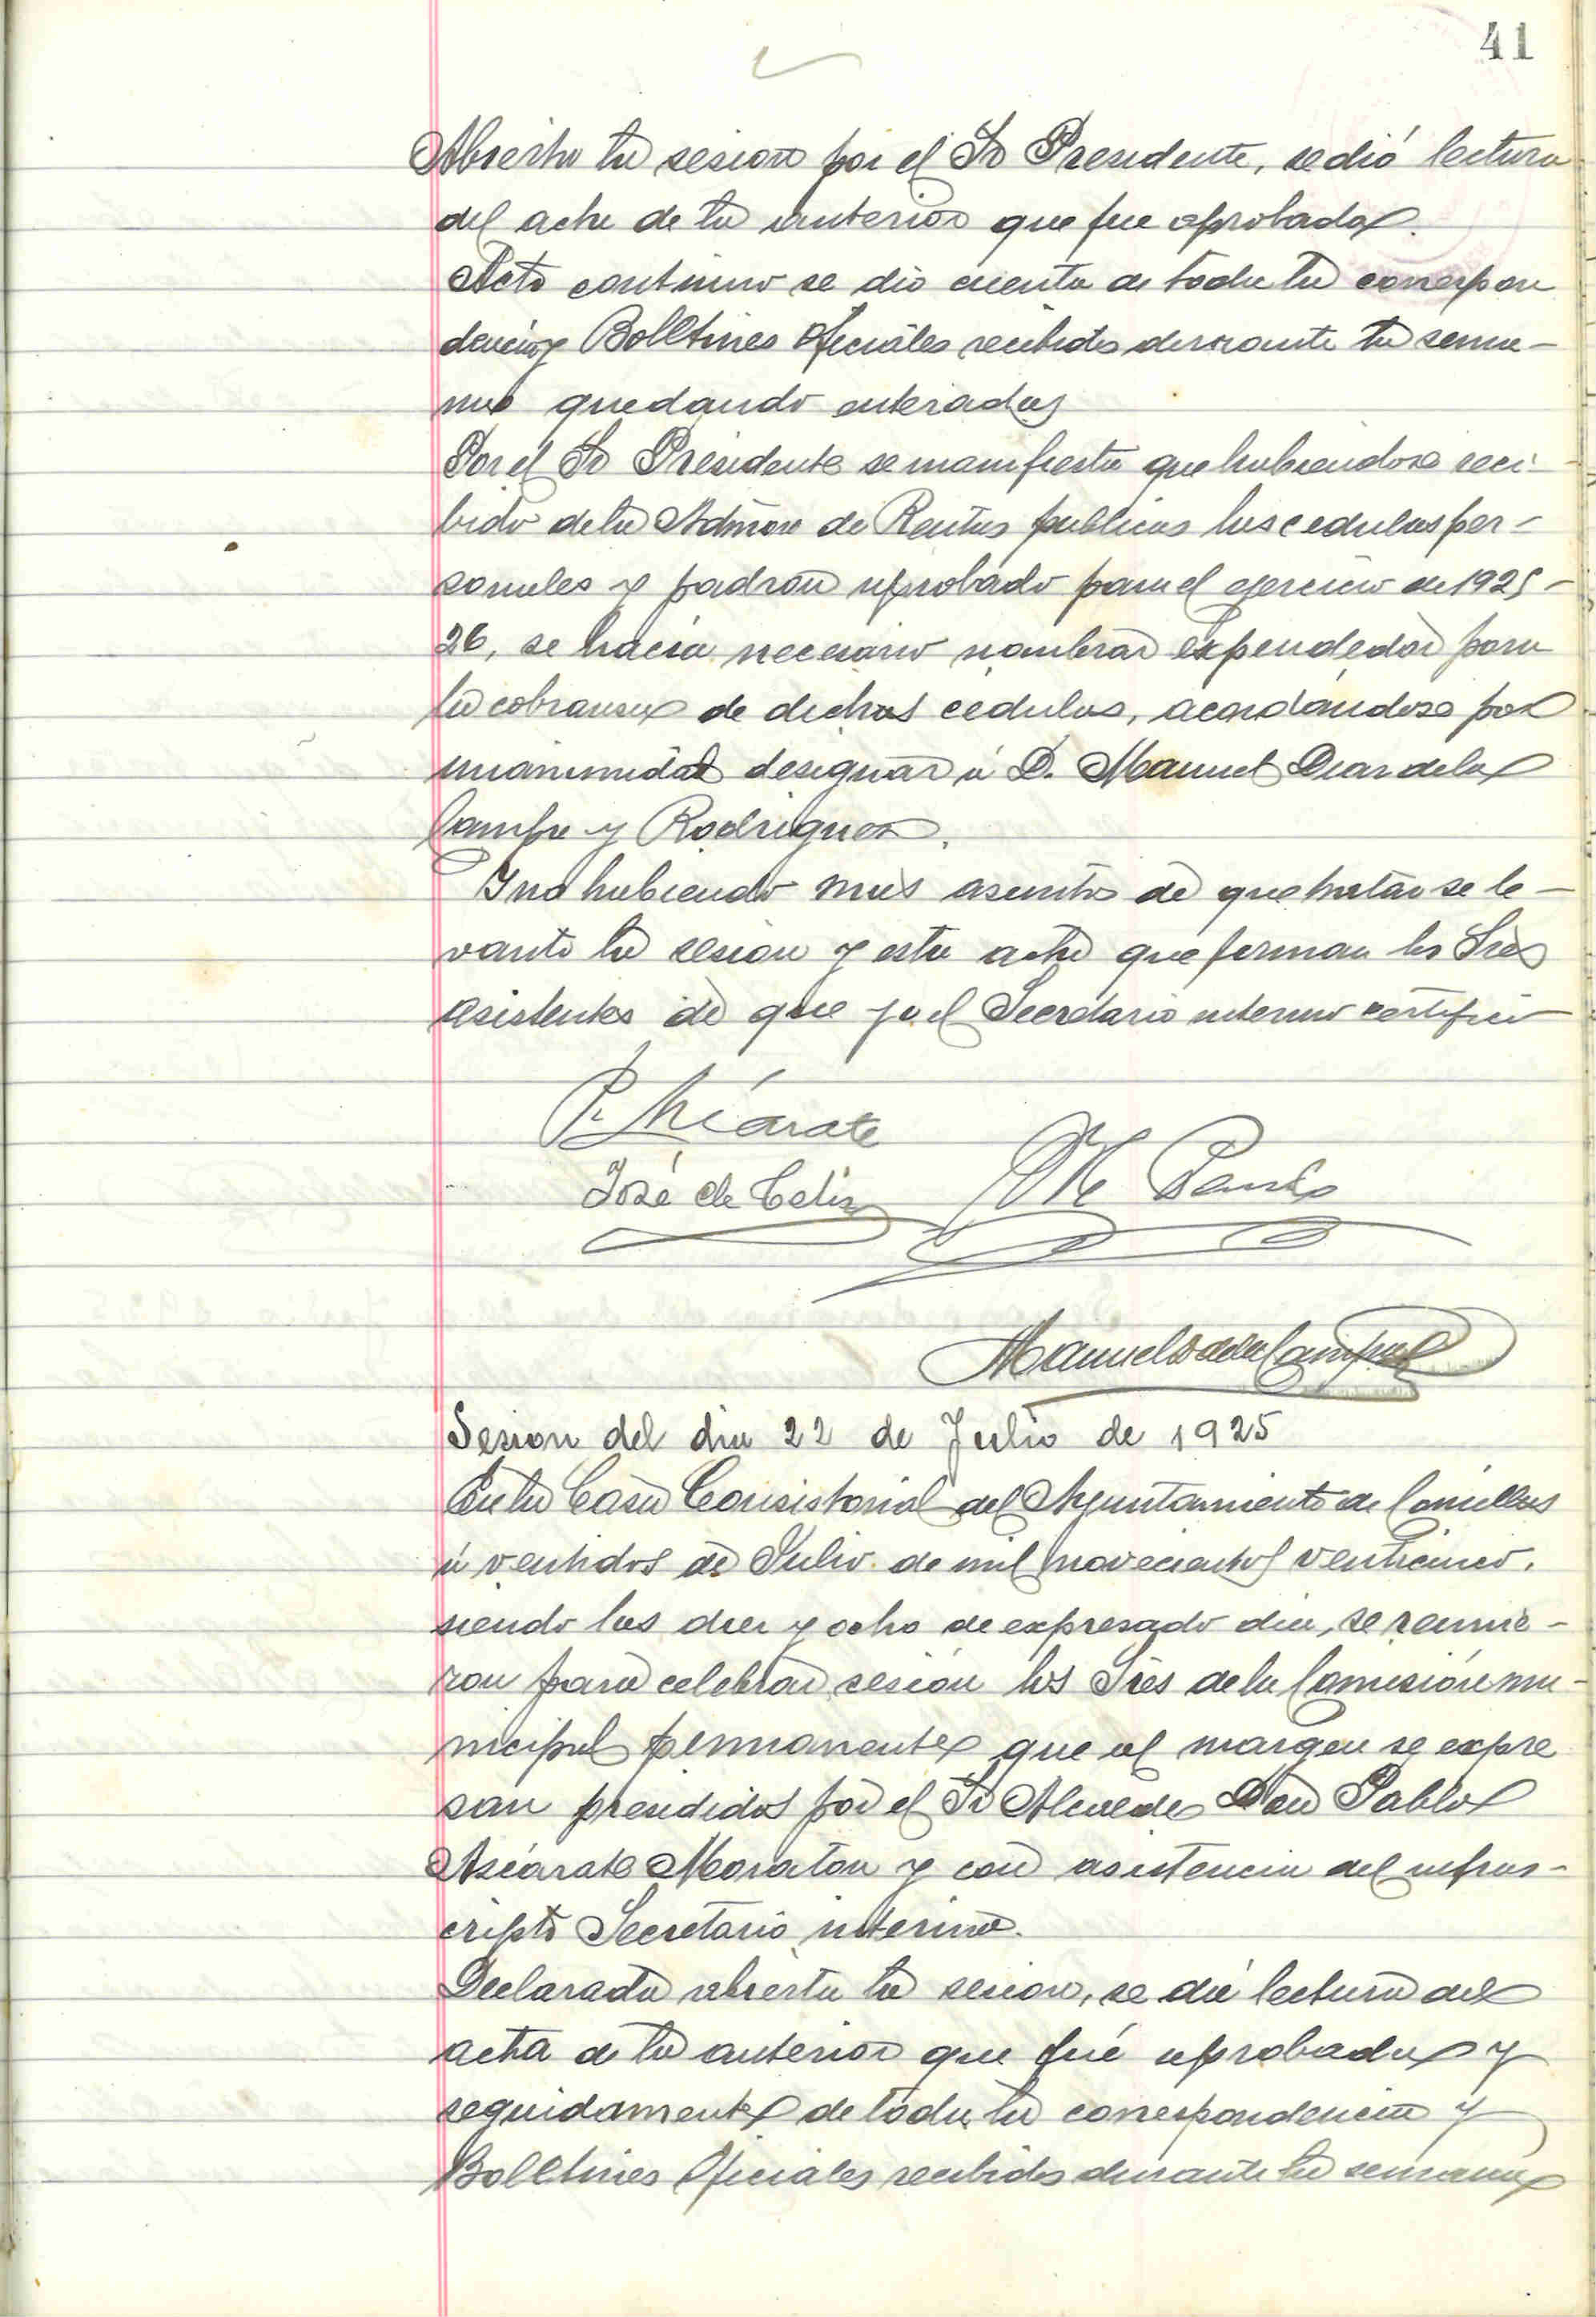 41
Abierta la sesion por el Sr Presidente, se dió lectura
del acta de la anterior que fue aprobada.
Acto continuo se dio cuenta de toda la correspon
dencia y Boletines Oficiales recibidos durante la sema-
na quedando enterados
Por el Sr Presidente se manifesta que habiendose reci-
bido de la Admon de Rentas publicas las cedulas per-
sonales y padron aprobado para el ejercicio de 1925-
26, se hacia necesario nombrar expendedor para
la cobranza de dichas cédulas, acordándose por
unanimidad designar á D. Manuel Diaz de la
Campa y Rodriguez.
Y no habiendo mas asuntos de que tratar se le-
vanto la sesion y esta acta que firman los Sres
asistentes de que yo el Secretario interino certifico
P. Azcárate
José de Celis
Manuel D de la Campa
Sesion del dia 22 de Julio de 1925
En la Casa Consistorial del Ayuntamiento de Comillas
á ventidos de Julio de mil novecientos venticinco,
siendo las diez y ocho de expresado dia, se reunie-
ron para celebrar sesión los Sres de la Comisión mu-
nicipal permanente que al margen se expre
san presididos por el Sr Alcalde Don Pablo
Azcárate Moraton y con asistencia del infras-
cripto Secretario interino.
Declarada abierta la sesion, se dió lectura del
acta de la anterior que fué aprobada y
seguidamente de toda la correspondencia y
Boletines Oficiales recibidos durante la semana